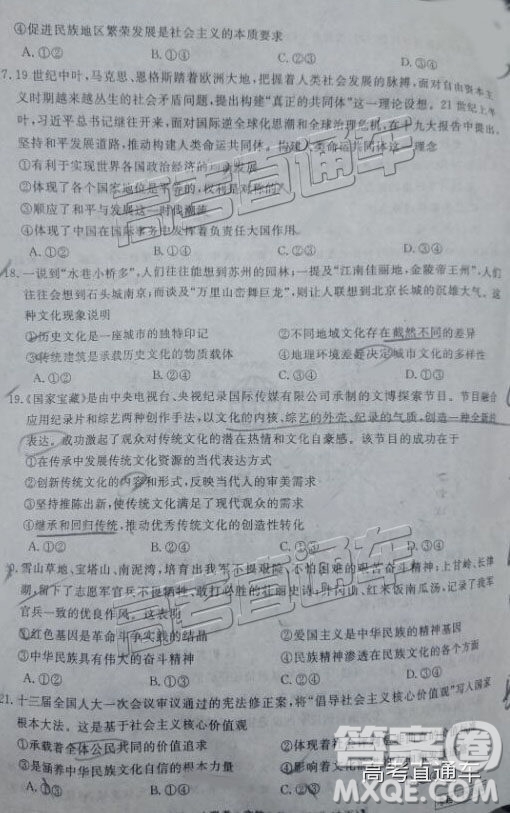 ④促进民族地区繁荣发展是社会主义的本质要求
A.①② B.①③ C.②④ D.③④
17.19世纪中叶,马克思、恩格斯踏着欧洲大地,把握着人类社会发展的脉搏,面对自由资本主
义时期越来越丛生的社会矛盾问题,提出构建“真正的共同体”这一理论设想。21世纪上半
叶,习近平总书记继往开来,面对国际逆全球化思潮和全球治理危机,在十九大报告中提出,
坚持和平发展道路,推动构建人类命运共同体。构建人类命运共同体这一理念
①有利于实现世界各国政治经济的均衡发展
②体现了各个国家地位是平等的,权利是对称的
③顺应了和平与发展这一时代潮流
④体现了中国在国际事务中发挥着负责任大国作用。
A.①② B.①③ C.②④ D.③④
18.一说到“水巷小桥多”,人们往往能想到苏州的园林;一提及“江南佳丽地,金陵帝王州”,人们
往往会想到石头城南京;而谈及“万里山峦舞巨龙”,则让人联想到北京长城的沉雄大气。这
种文化现象说明
①历史文化是一座城市的独特印记 ②不同地域文化存在截然不同的差异
③传统建筑是承载历史文化的物质载体 ④地理环境差异决定城市文化的多样性
A.①② B.①③ C.②④ D.③④
19.《国家宝藏》是由中央电视台、央视纪录国际传媒有限公司承制的文博探索节目。节目融合
应用纪录片和综艺两种创作手法,以文化的内核、综艺的外壳、纪录的气质,创造一种全新的
表达。成功激起了观众对传统文化的潜在热情和文化自豪感。该节目的成功在于
①在传承中发展传统文化资源的当代表达方式
②创新传统文化的内容和形式,反映当代人的审美需求
③坚持推陈出新,使传统文化满足了现代观众的需求
④继承和回归传统,推动优秀传统文化的创造性转化
A.①② B.①③ C.②④ D.③④
0.雪山草地、宝塔山、南泥湾,培育出我军不畏艰险、不怕困难的艰苦奋斗精神;上甘岭、长津
湖,留下了志愿军官兵不畏牺牲、敢打必胜的壮丽史诗;井冈山、红米饭南瓜汤,记录了我军
官兵一致的优良作风。这表明
①红色基因是革命斗争实践的结晶 ②爱国主义是中华民族的精神基因
③中华民族具有伟大的奋斗精神 ④民族精神渗透在民族文化的各个方面
A.①② B.①③ C.②④ D.③④
21.十三届全国人大一次会议审议通过的宪法修正案,将“倡导社会主义核心价值观”写入国家
根本大法。这是基于社会主义核心价值观
①承载着全体公民共同的价值追求 ②体现着
③是涵养中华民族文化自信的根本力量 ④影响着文化
A.①② B.①③ C.②④
高考直通车
高考直通车
高考直通车
答案卷
MXQE.COM